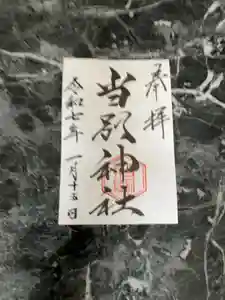 奉拝
当別神社
令和七年 一月十五日